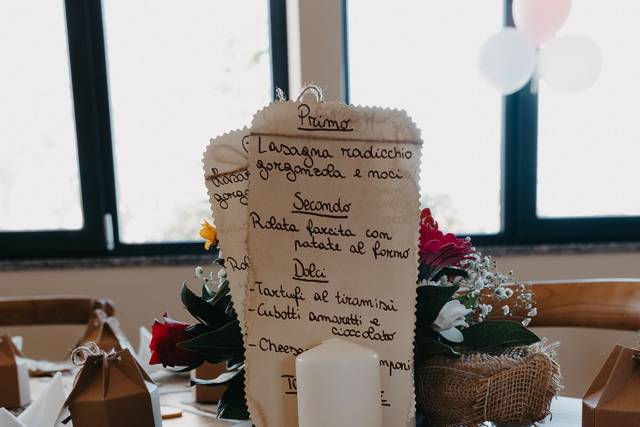 Primo
Lasagna radicchio
gorgonzola e noci
Secondo
Rolata farcita con
patate al forno
Dolci
-Tartufi al tiramisù
-Cubotti amaretti e
cioccolato